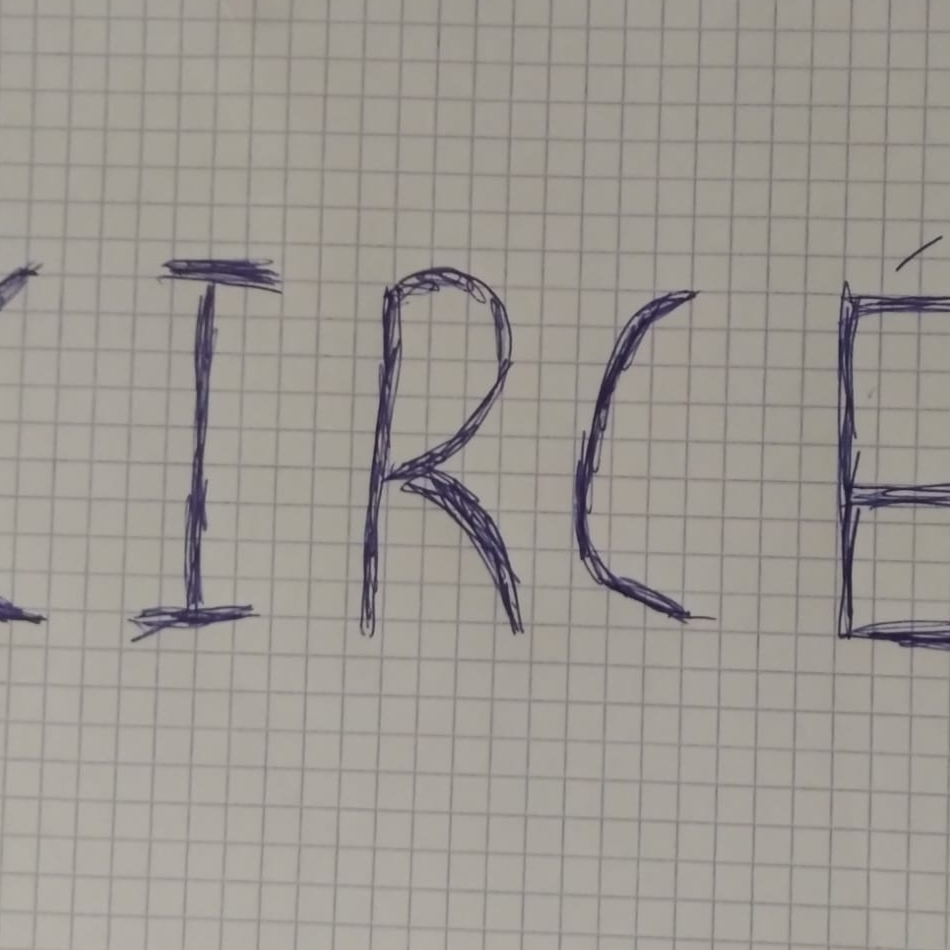 CIRCÉ